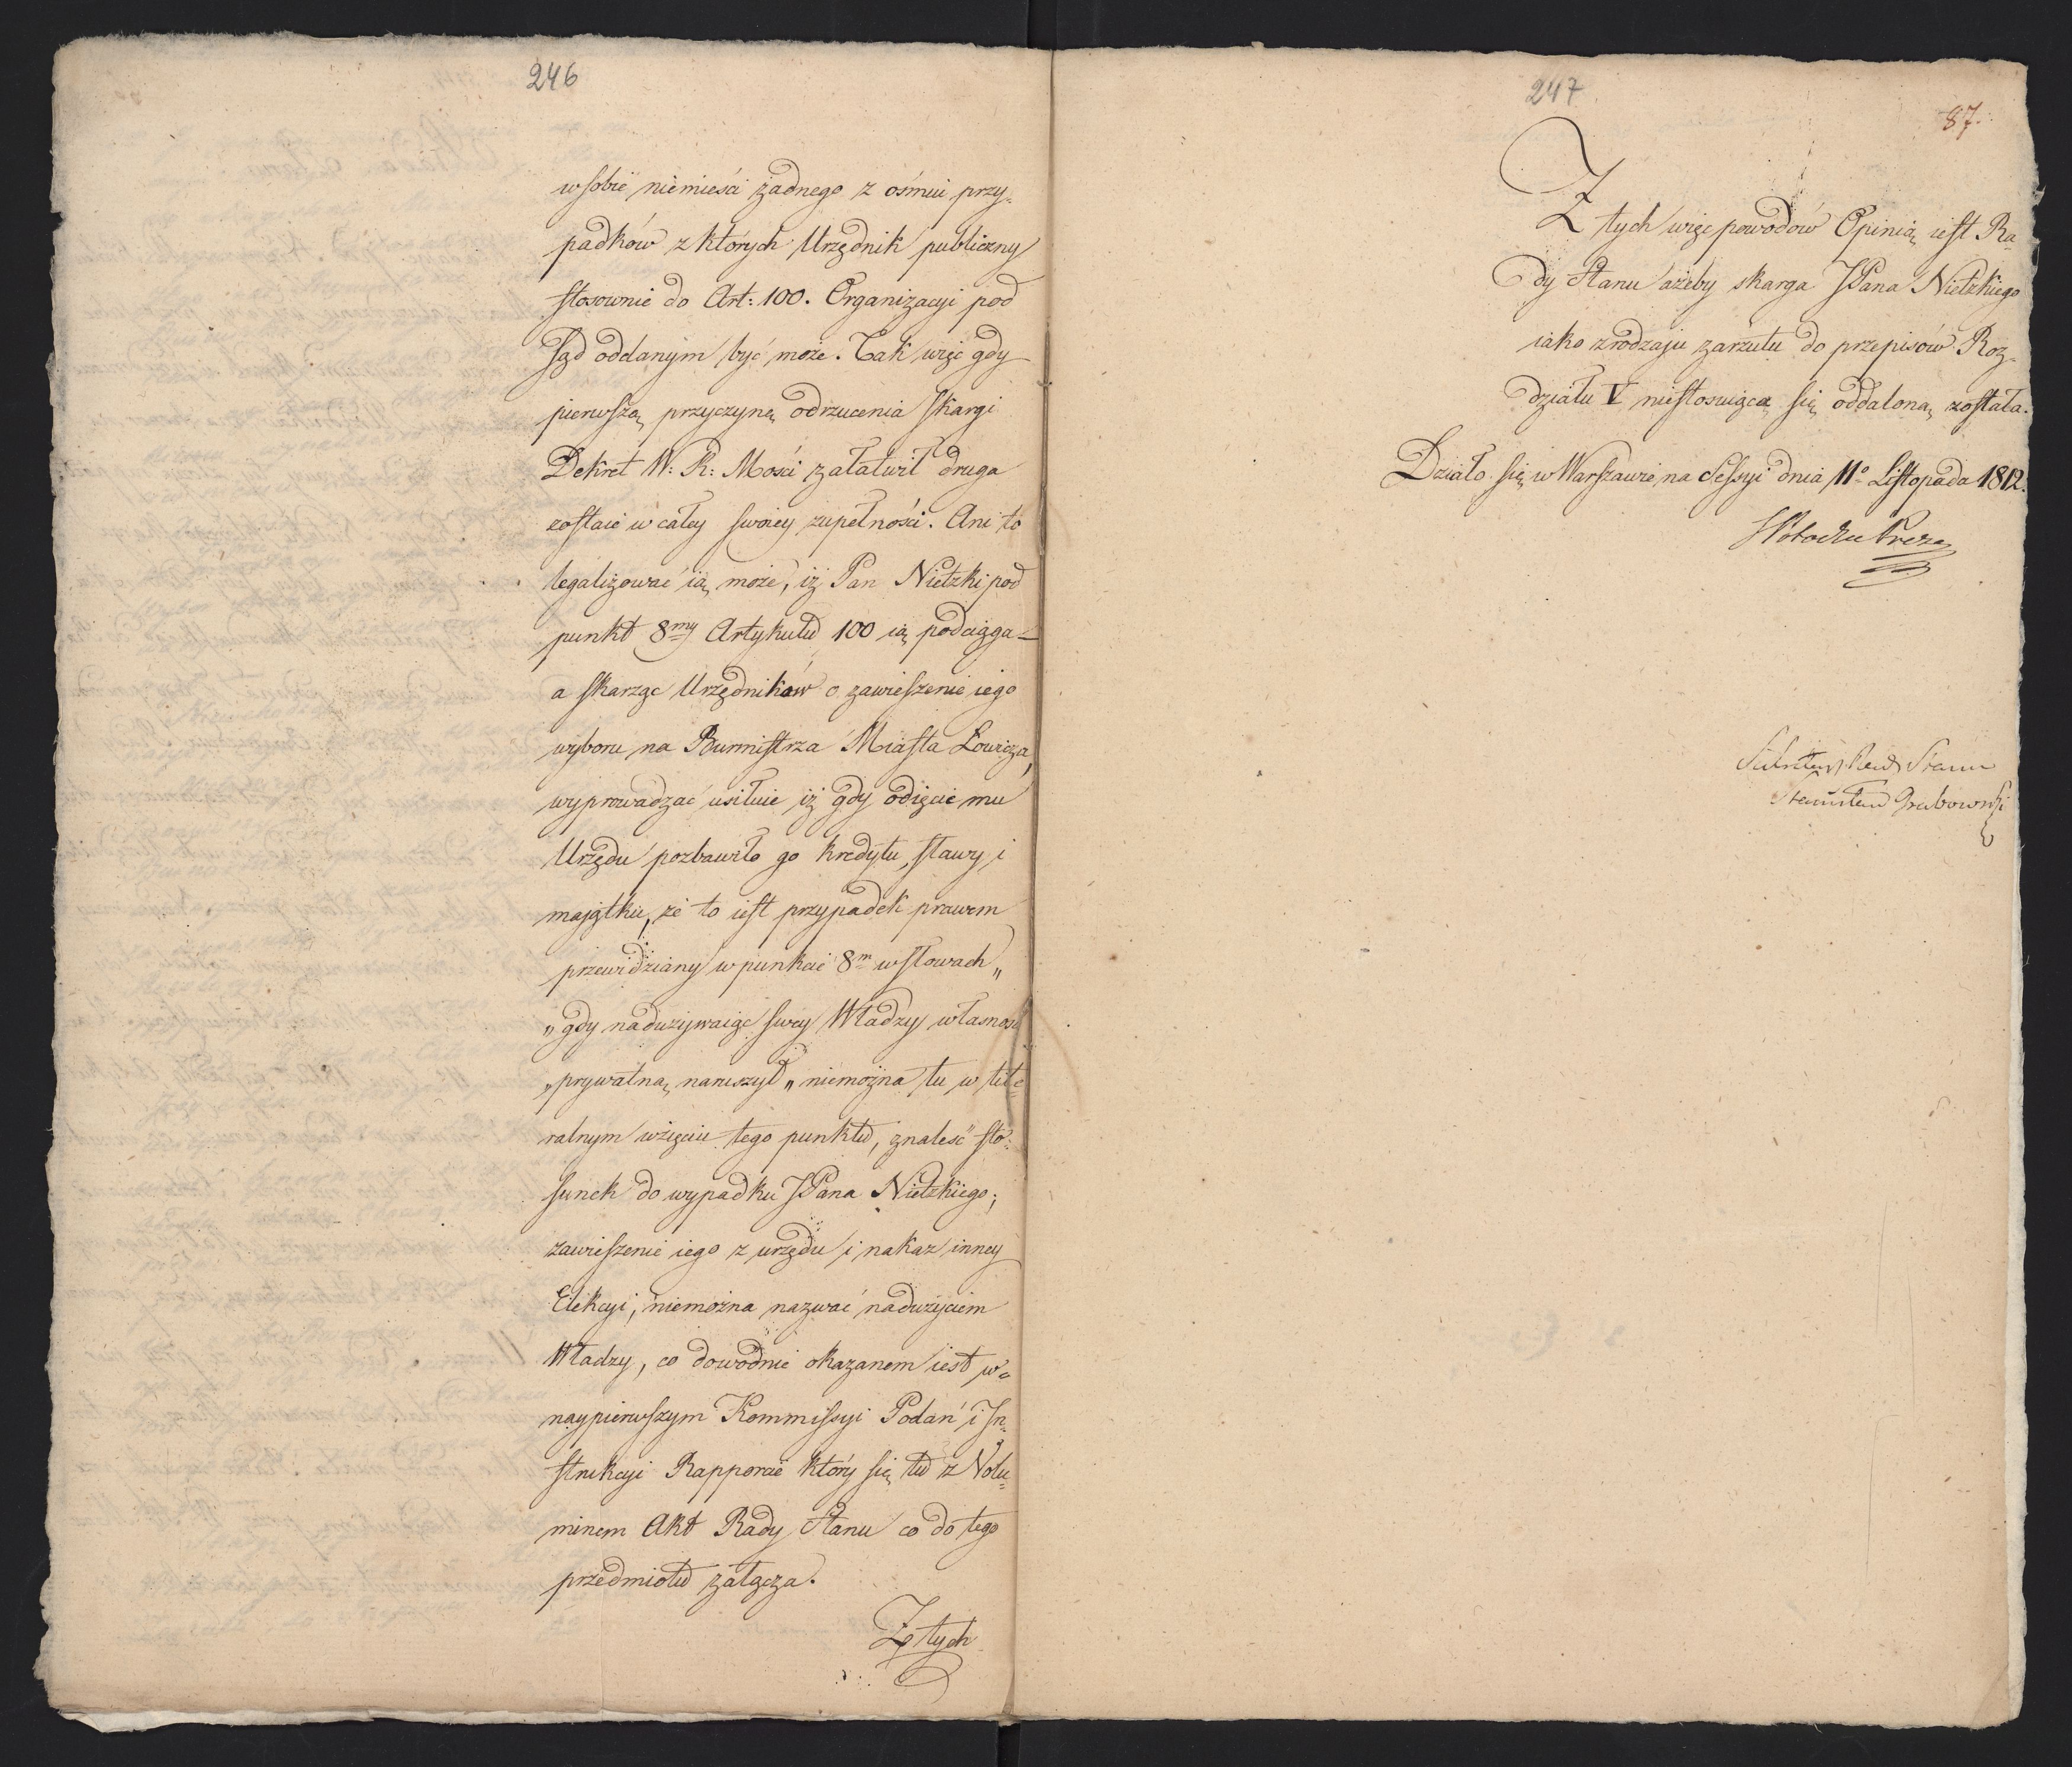 246
w sobie niemieści żadnego z ośmiu przy„
padków z których Urzędnik publiczny
stosownie do Art: 100. Organizacyi pod
Sąd oddanym być może. Tak więc gdy
pierwszą przyczynę odrzucenia skargi
Dekret W: K: Mości załatwił druga
zostaie w całey swoiey zupełności. Ani to
legalizować ią może, iż Pan Nietzki pod
punkt 8my Artykułu 100 ią podciąga
a skarżąc Urzędników o zawieszenie iego
wyboru na Burmistrza Miasta Łowicza,
wyprowadzać usiłuie iż gdy odięcie mu
Urzędu pozbawiło go kredytu, sławy i
maiątku, że to iest przypadek prawem
przewidziany w punkcie 8m w słowach „
„gdy nadużywaiąc swey Władzy własność
„prywatną naruszył„ niemożna tu w lite„
ralnym wzięciu tego punktu, znaleść sto„
sunek do wypadku JPana Nietzkiego;
zawieszenie iego z urzędu i nakaz inney
Elekcyi, niemożna nazwać nadużyciem
Władzy, co dowodnie okazanem iest w„
naypierwszym Kommissyi Podań i In„
strukcyi Rapporcie który się tu z Volu„
minem Akt Rady Stanu co do tego
przedmiotu załącza.
Z tych
247
87.
Z tych więc powodów Opinią iest Ra„
dy Stanu ażeby skarga JPana Nietzkiego
iako z rodzaju zarzutu do przepisów Roz„
działu V niestosuiąca się oddaloną została.
Działo się w Warszawie na Sessyi dnia 11o Listopada 1812.
Potocki Prezes
Sekretarz Rady Stanu
Stanisław Grabowski